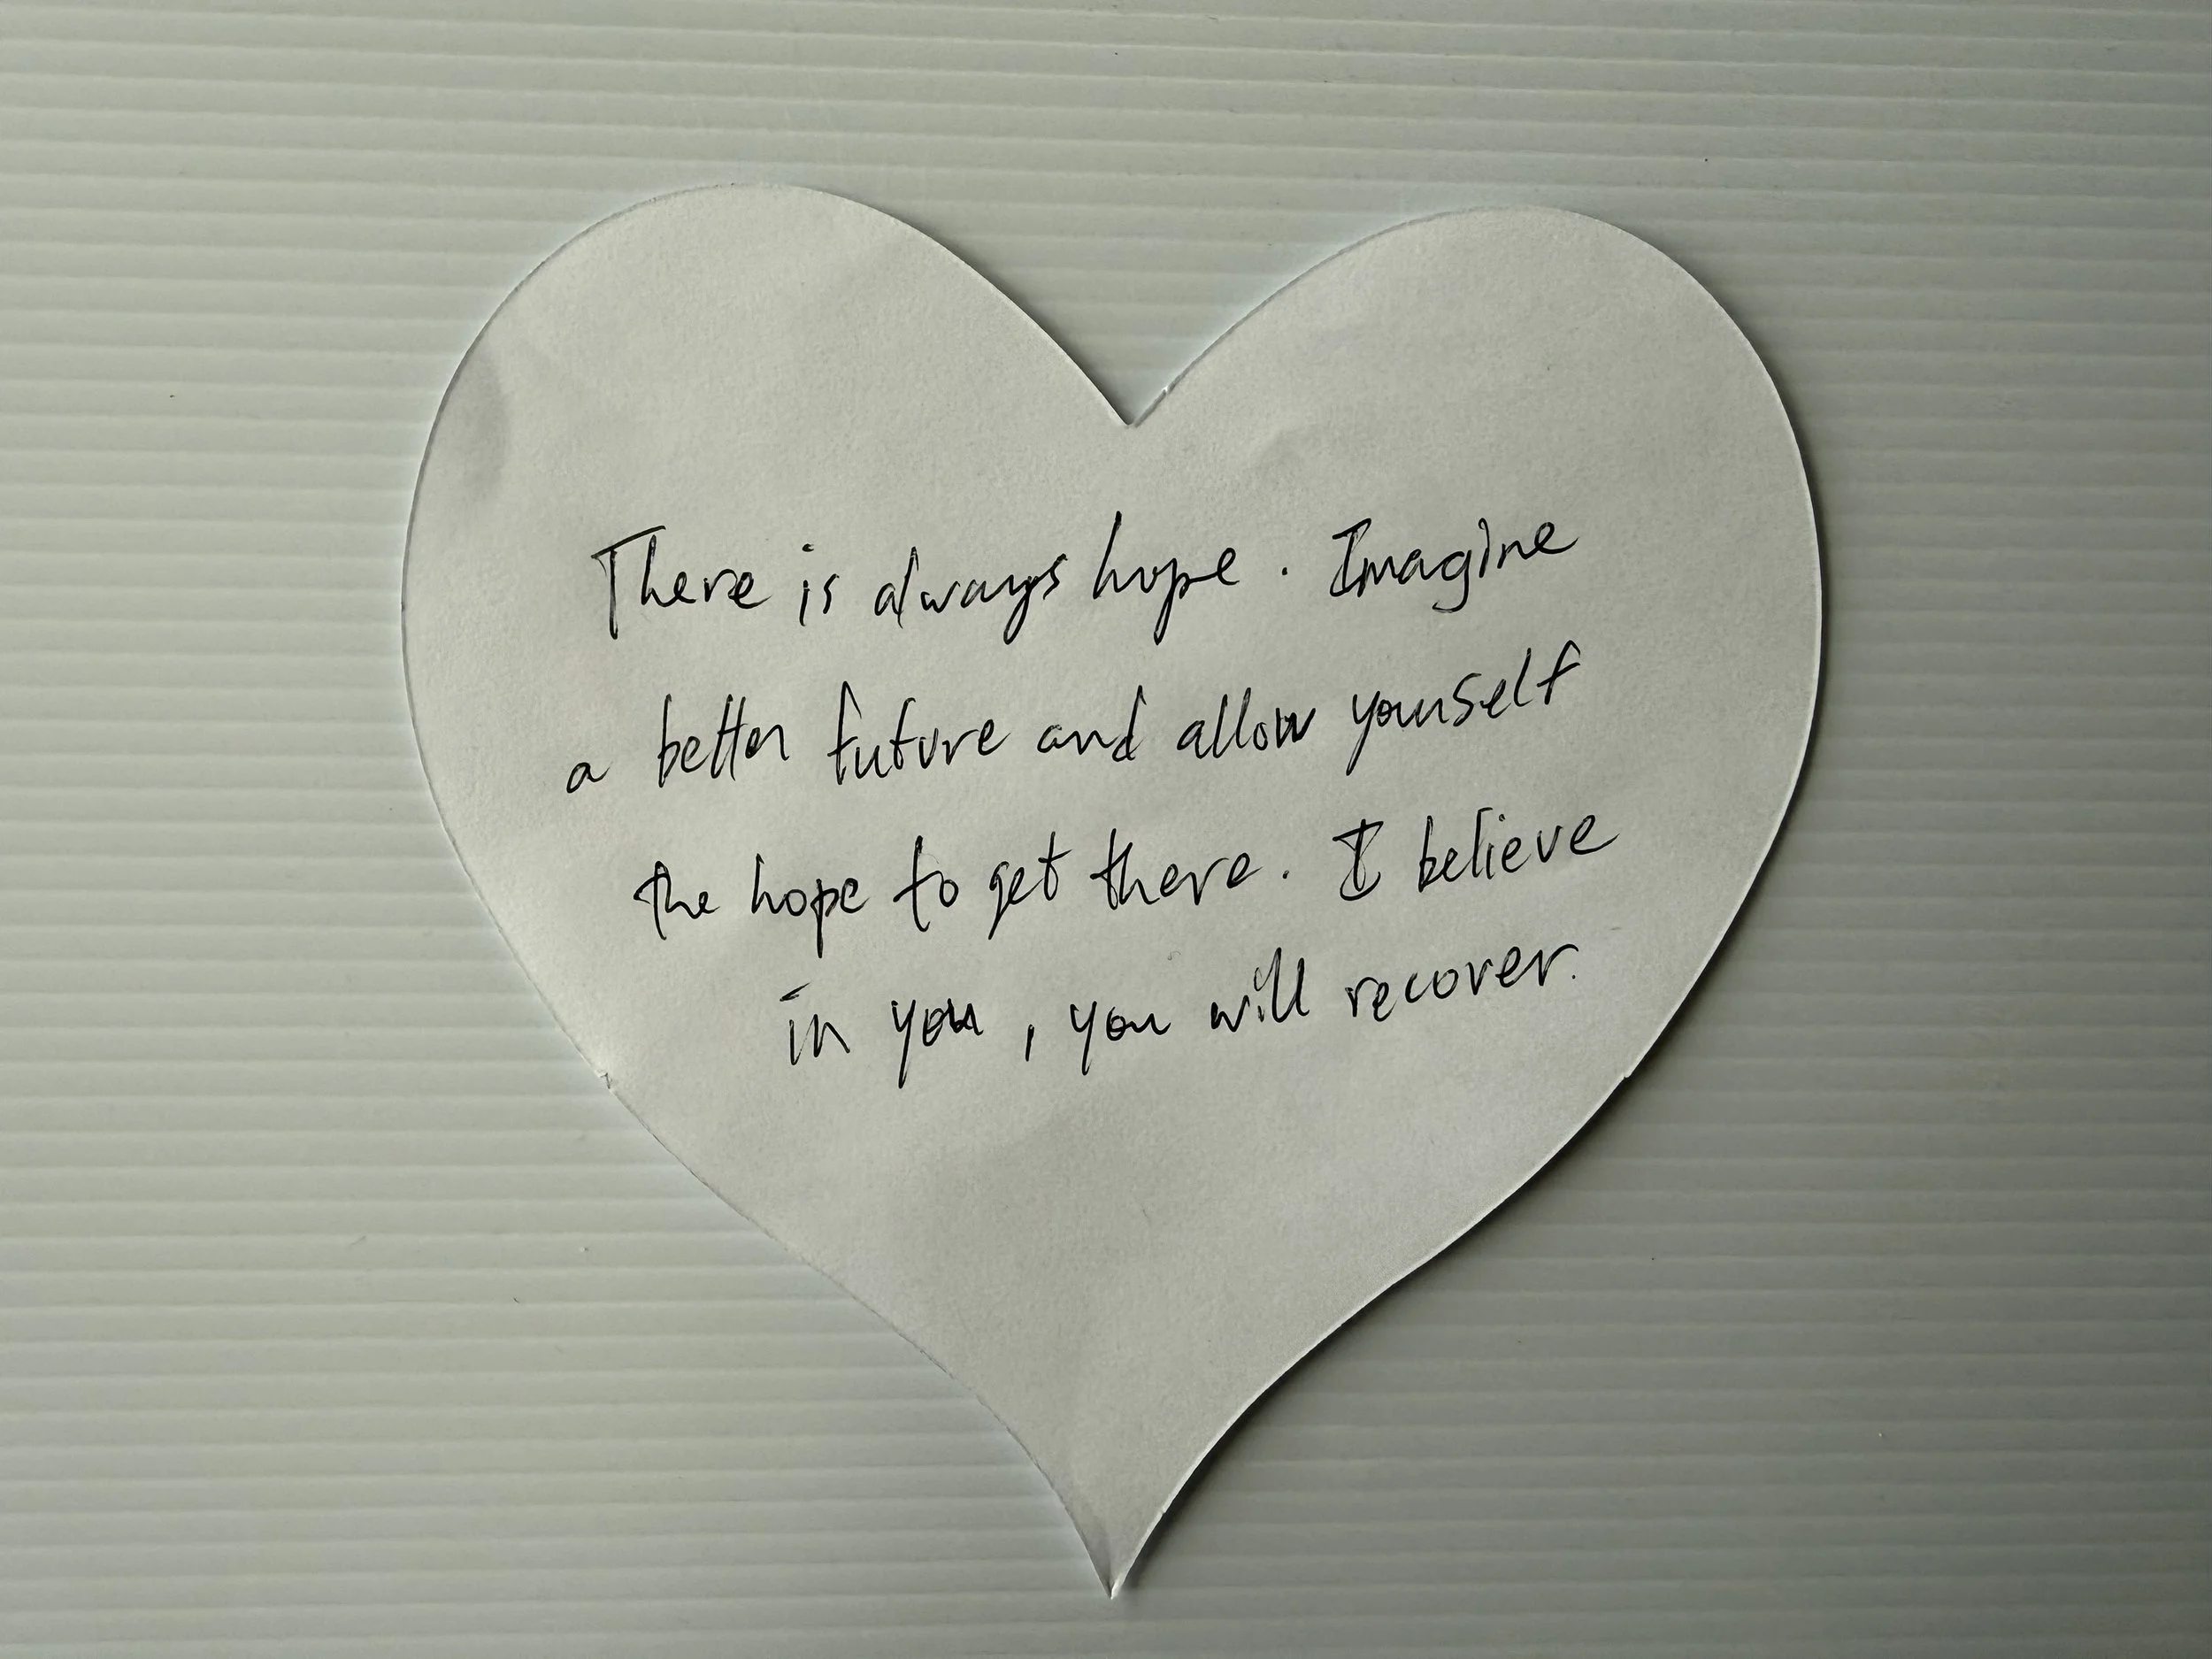 There is always hope. Imagine
a better future and allow yourself
the hope to get there. I believe
in you, you will recover.